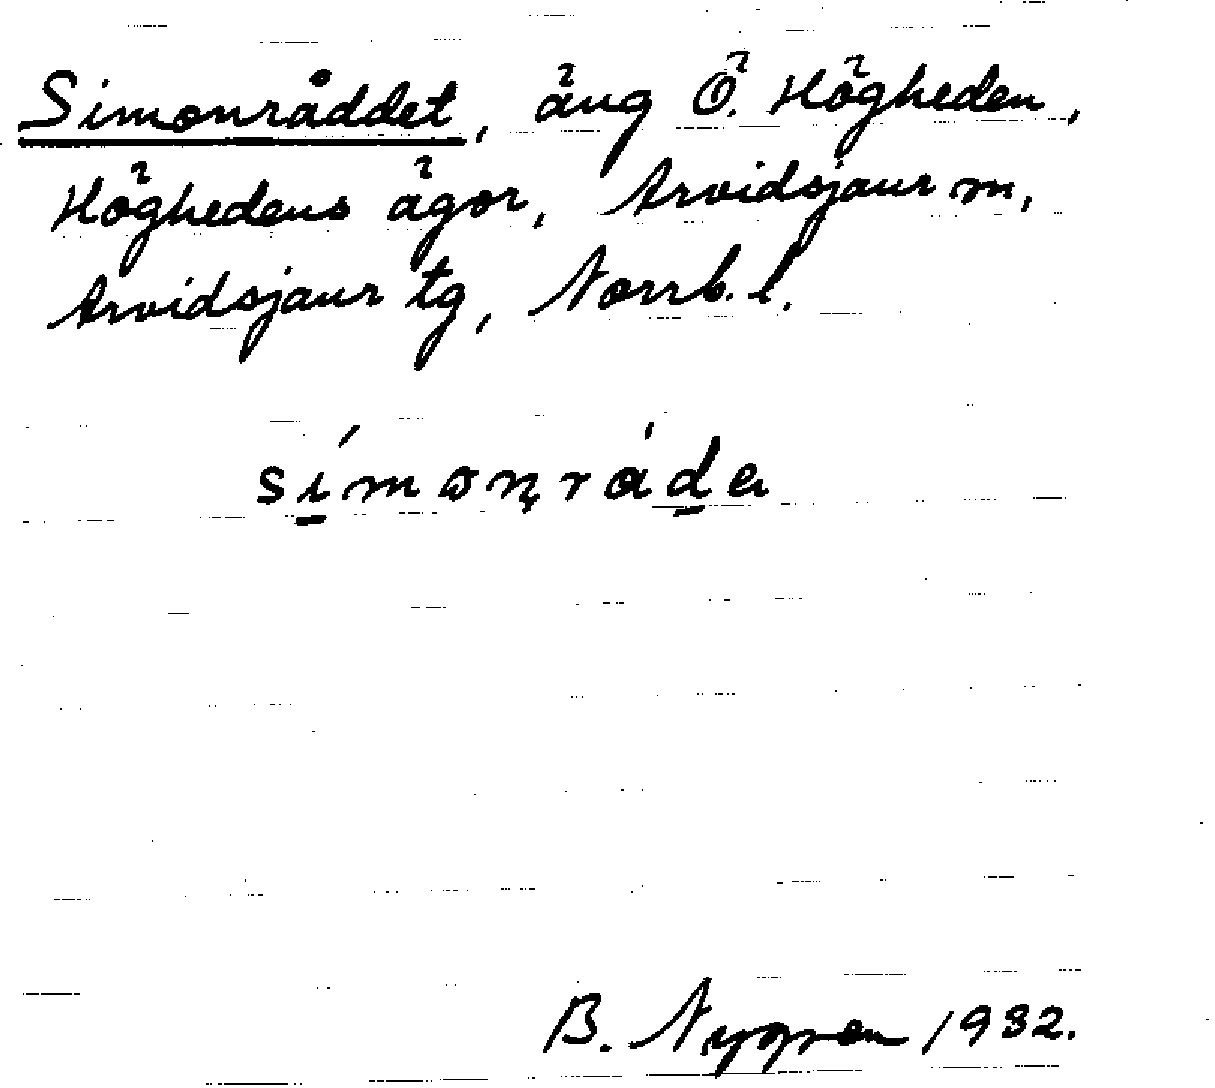 Simonråddet, äng Ö. Högheden,
Höghedens ägor, Arvidsjaur m,
Arvidsjaur tg, Norrb. l.
símɷn̥rád̲a
B. Nygren 1932.